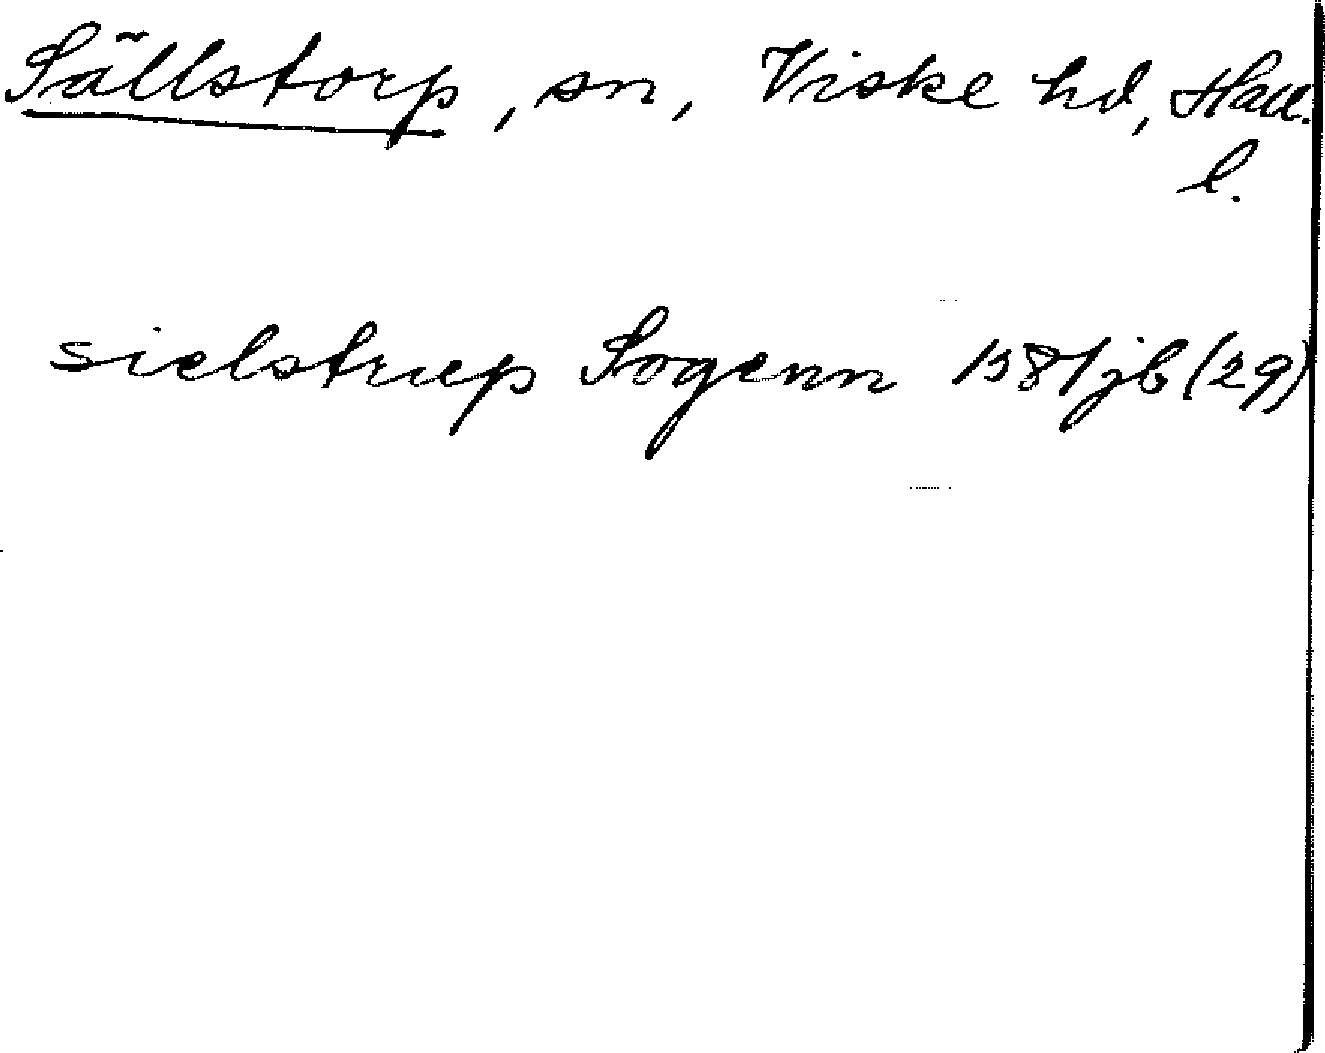 Sällstorp, sn, Viske hd, Hall.
l.
sielstrup Sogenn 1581 jb (29)